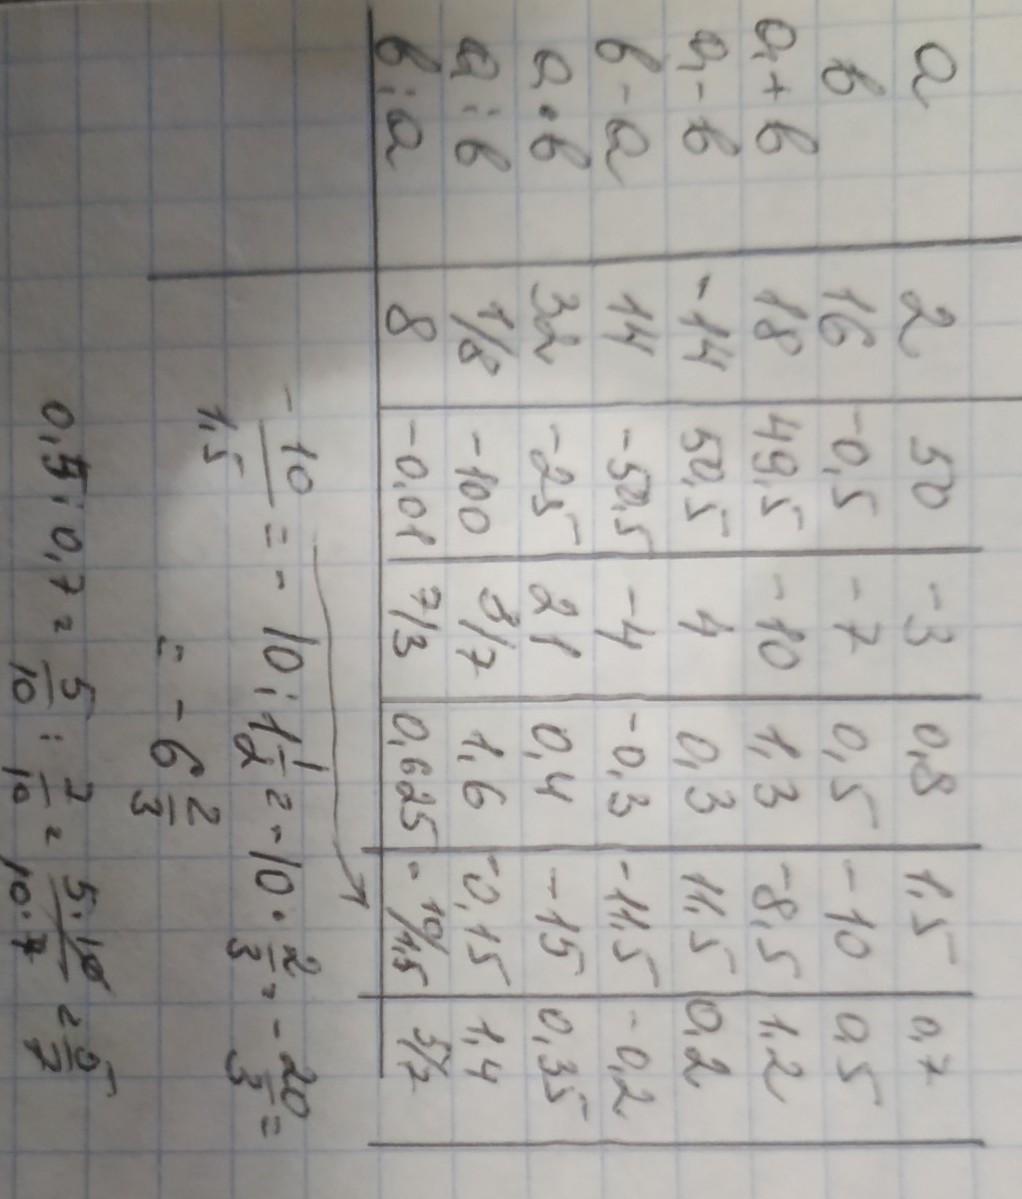 a 2 50 -3 0,8 1,5 0,7
b 16 -0,5 -7 0,5 -10 0,5
a+b 18 49,5 -10 1,3 -8,5 1,2
a-b -14 50,5 4 0,3 11,5 0,2
b-a 14 -50,5 -4 -0,3 -11,5 -0,2
a·b 32 -25 21 0,4 -15 0,35
a:b 1/8 -100 3/7 1,6 -0,15 1,4
b:a 8 -0,01 7/3 0,625 -10/1,5 5/7
-10/1,5 = -10 : 1 1/2 = -10 · 2/3 = -20/3 =
= -6 2/3
0,5 : 0,7 = 5/10 : 7/10 = 5·10/10·7 = 5/7